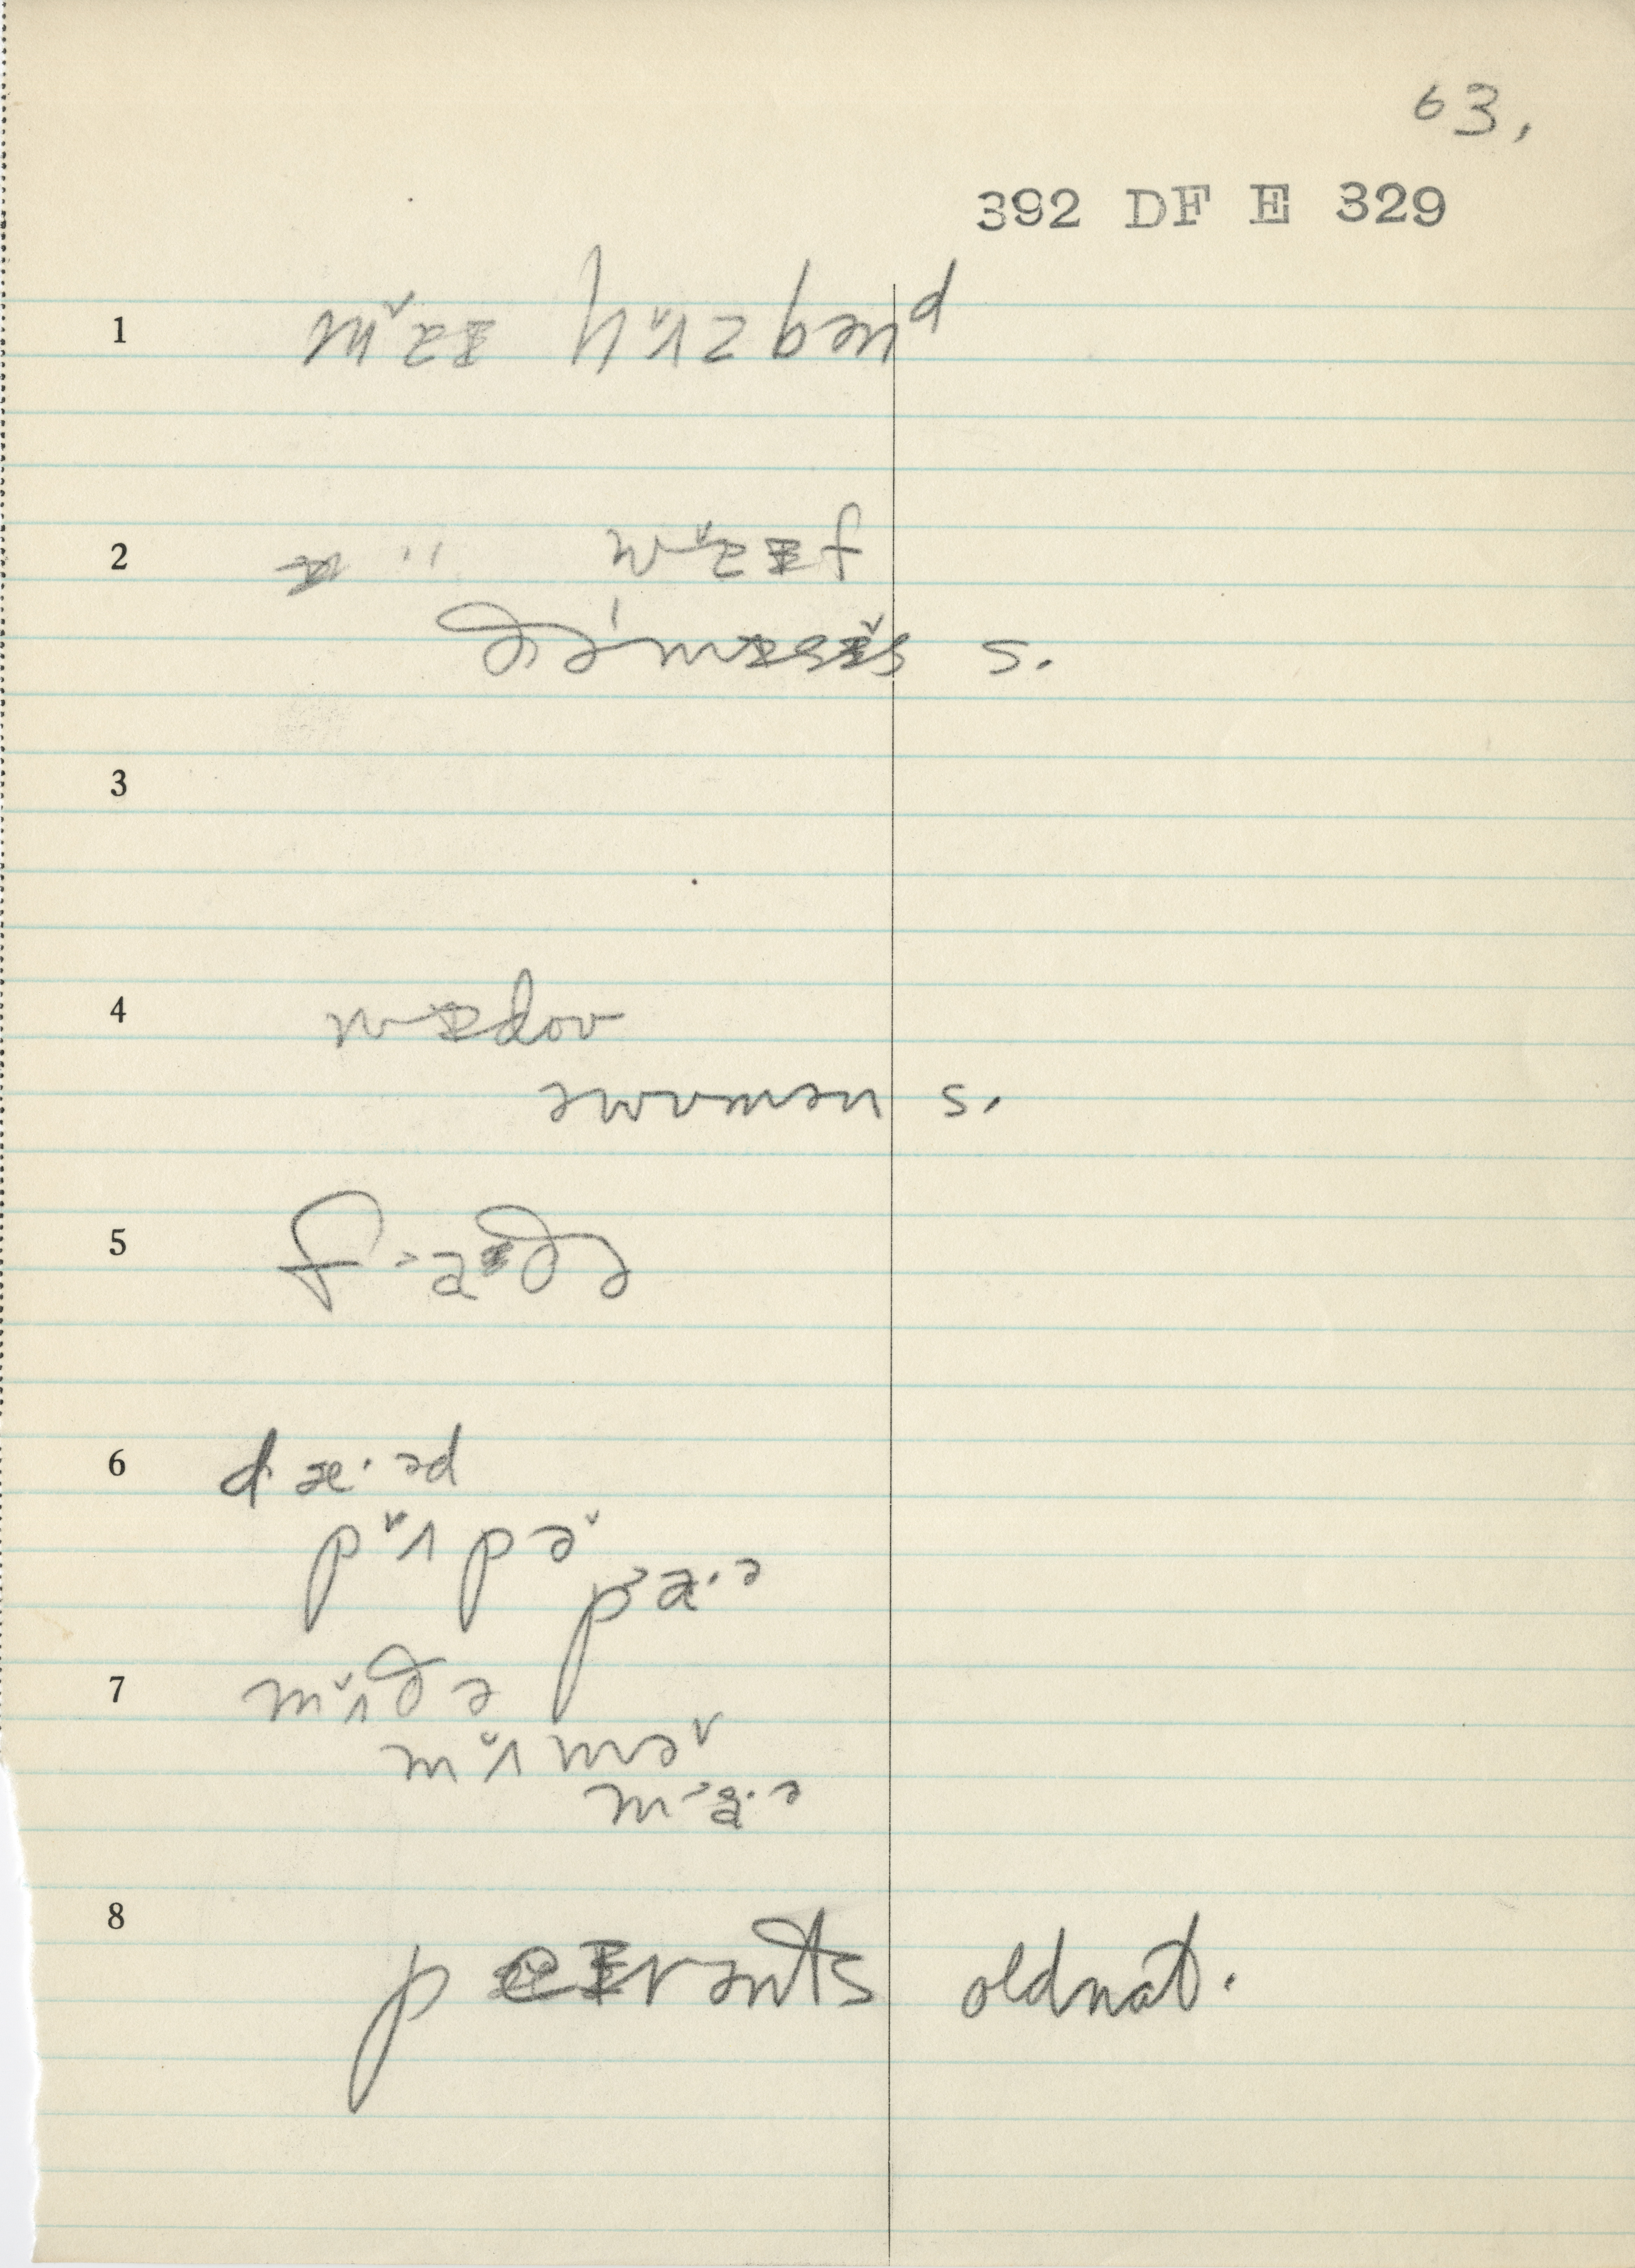 63.
392 DF E 329
1 m˅aɪ h˅ʌzbənᵈ
2 " w˅aɪf
ðə'mɪsɪ˅s s.
3
4 wɪdoʊ
əwʊmən s.
5 f˃aðə
6 dæ·əd
p˅ʌpə˅
p˃a·ə
7 m˅ʌðə
m˅ʌmə˅
m˃a·ə
8 peɪrənts oldnat.